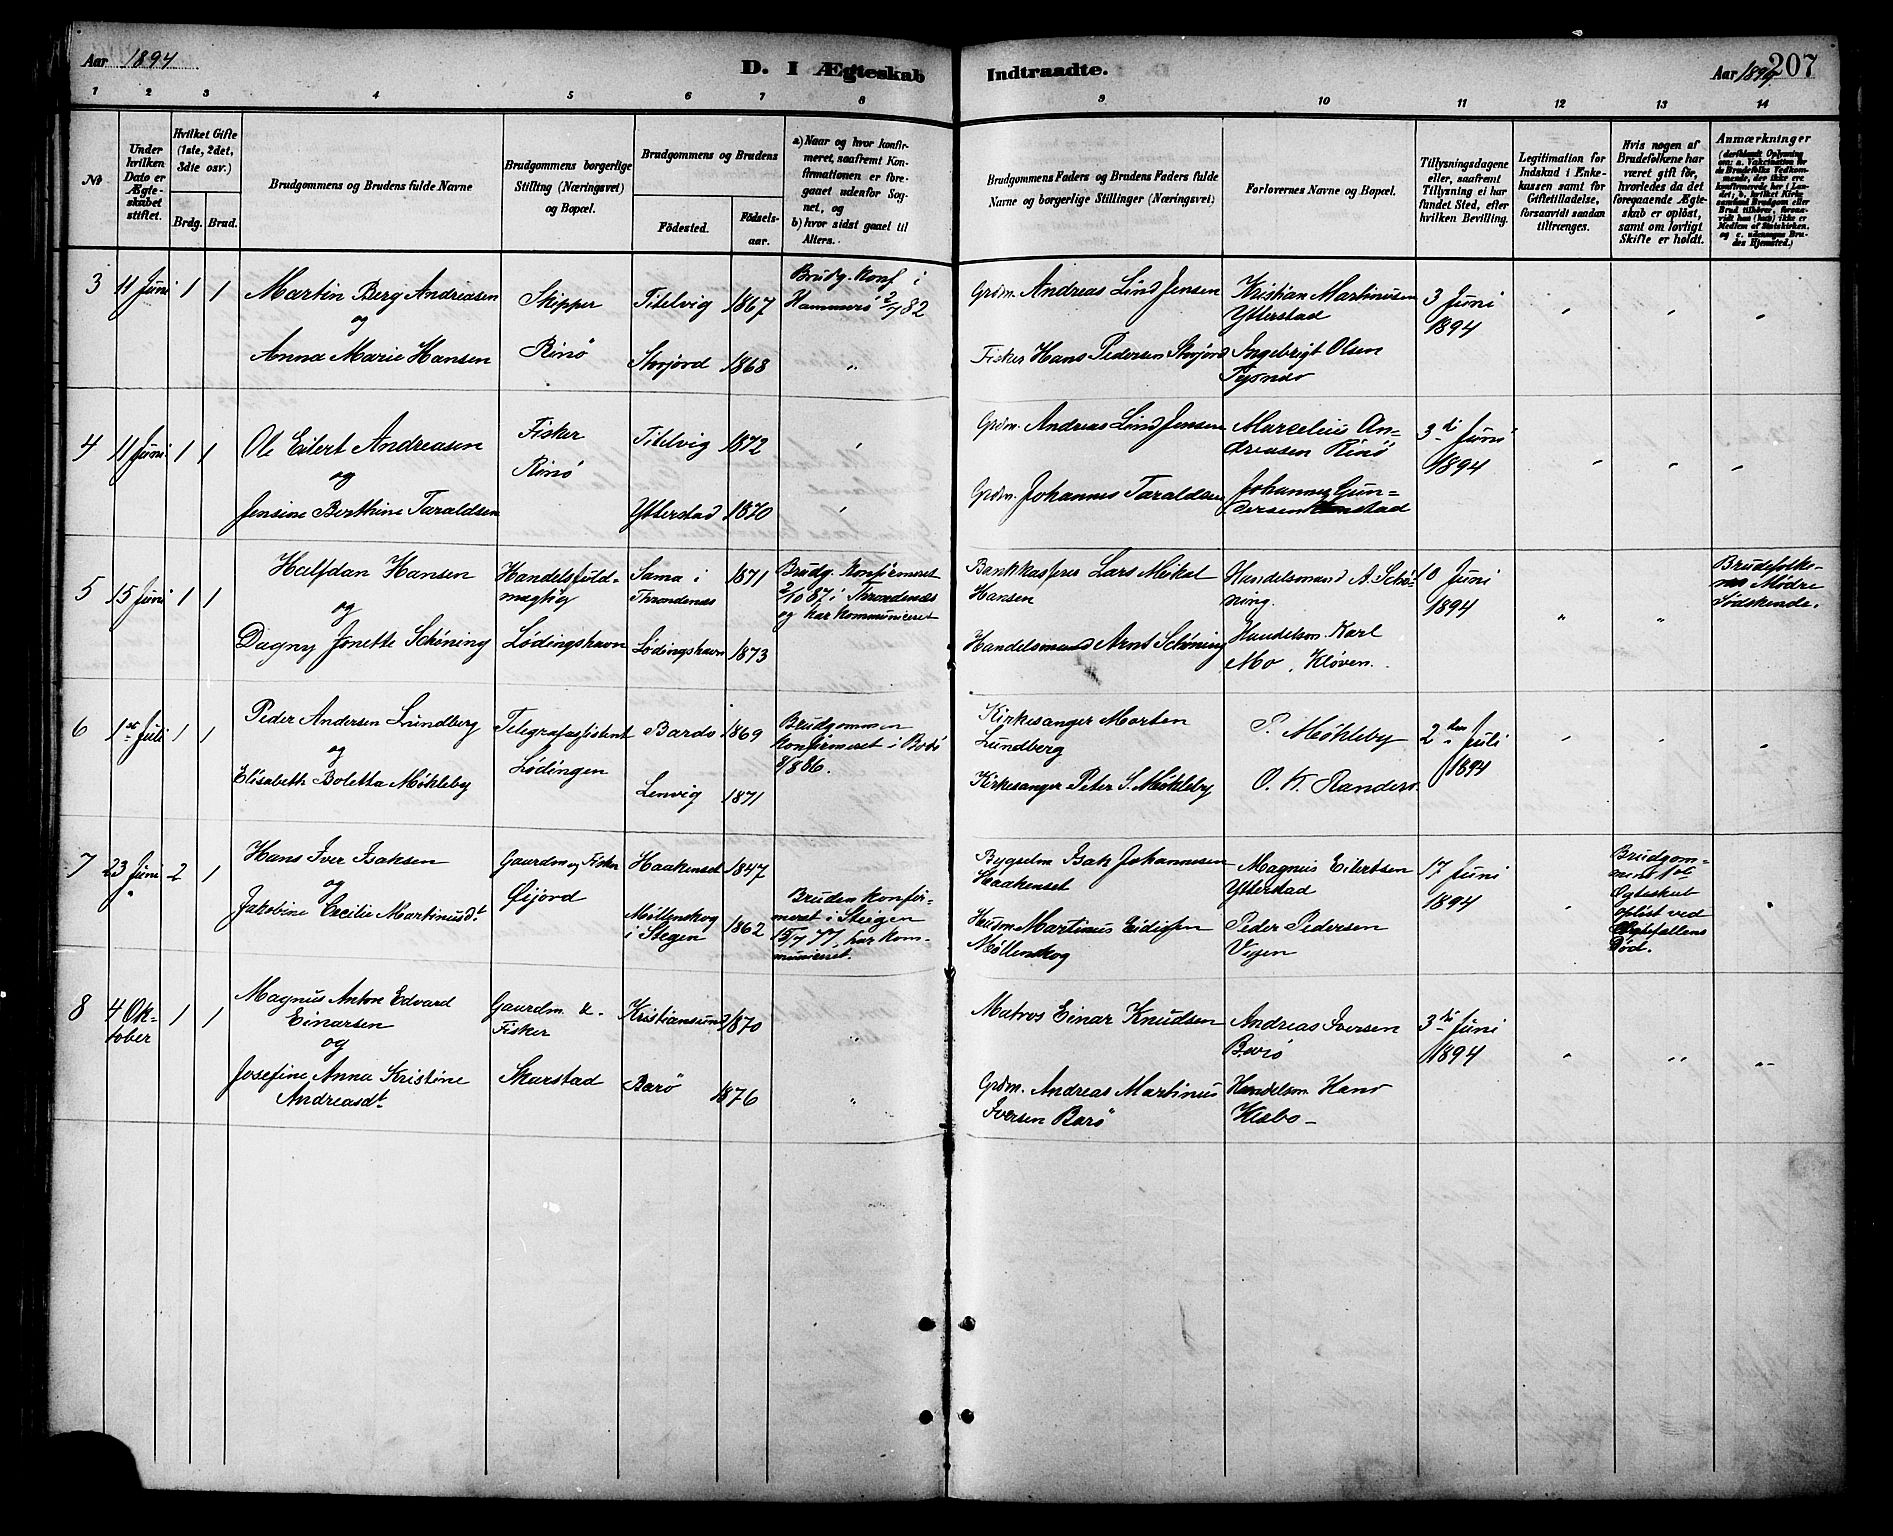 Aar 1894
D. I Ægteskab Indtraadte.
Aar 1894.
207
1 2 3 4 5 6 7 8 9 10 11 12 13 14
No
Under hvilken Dato er Ægteskabet stiftet.
Hvilket Gifte (1ste, 2det, 3die osv.)
Brdg. Brud.
Brudgommens og Brudens fulde Navne
Brudgommens borgerlige Stilling (Næringsvei) og Bopæl.
Brudgommens og Brudens
Födested.
Födsels-aar.
a) Naar og hvor konfirmeret, saafremt Konfirmationen er foregaaet udenfor Sognet, og
b) hvor sidst gaaet til Alters.
Brudgommens Faders og Brudens Faders fulde Navne og borgerlige Stillinger (Næringsvei)
Forlovernes Navne og Bopæl.
Tillysningsdagene eller, saafremt Tillysning ei har fundet Sted, efter hvilken Bevilling.
Legitimation for Indskud i Enkekassen samt for Giftetilladelse, forsaavidt saadan tiltrænges.
Hvis nogen af Brudefolkene har været gift för, hvorledes da det foregaaende Ægteskab er oplöst, samt om lovligt Skifte er holdt.
Anmærkninger
(deriblandt Oplysning om: a. Vakcination for de Brudefolks Vedkommende, der ikke ere konfirmerede her i Landet; b. hvilket Kirkesamfund Brudgom eller Brud tilhörer, forsaavidt han (hun) ikke er Medlem af Statskirken, og c. udensogns Brudes Hjemsted.)
3 11 Juni 1 1 Martin Berg Andreasen
og
Anna Marie Hansen
Skipper
Rinö
Titelvig 1867
Storjord 1868
Brudg. Konf i
Hammerö 2/7 82
"
Grdm. Andreas Lind Jensen
Fisker Hans Pedersen Storjord
Kristian Martinusen
Ytterstad
Ingebrigt Olsen
3 Juni
1894
" " "
4 11 Juni 1 1 Ole Eilert Andreasen
og
Jensine Berthine Taraldsen
Fisker
Rinö
Titelvig 1872
Ytterstad 1870
Grdm. Andreas Lind Jensen
Grdm. Johannes Taraldsen
Marcelius An-
dreasen Rinö
Johannes Gun-
dersen
3die Juni
1894
" " "
5 15 Juni 1 1 Halfdan Hansen
og
Dagny Jonette Schöning
Handelsfuld-
mægtig
Lödingshavn
Sama i
Throndenæs
1871
Lödingshavn 1873
Brudg. Konfirmeret
2/10 87 i Throndenæs
og har kommuniceret
Bankkasserer Lars Mikal
Hansen
Handelsmand Arnt Schöning
Handelsmand A. Schö-
ning.
Handelsm. Karl
Mo, Klöven.
10 Juni
1894
" "
Brudefolke-
nes Mødre
Södskende.
6 1ste Juli 1 1 Peder Andersen Lundberg
og
Elisabeth Boletta Mökleby
Telegrafasistent
Lödingen
Bardo 1869
Lenvig 1871
Brudgommen
Konfirmeret i Bodö
8/8 86.
Kirkesanger Morten
Lundberg
Kirkesanger Peter S. Mökleby
P. Mökleby
O. K. Randers.
2den Juli
1894
" " "
7 23 Juni 2 1 Hans Iver Isaksen
og
Jakobine Cecilie Martinusdt
Gaardm og Fisker
Öijord
Haakenset 1847
Möllenskog
i Stegen
1862
Bruden konfir-
meret i Steigen
15/7 77, har kom-
municeret.
Bygselm Isak Johannesen
Haakenset
Husm Martinus Eidissen
Möllenskog
Magnus Eilertsen
Ytterstad
Peder Pedersen
Vigen
17 Juni
1894
"
Brudgom-
mens 1ste
Egteskab
oplöst ved
Egtefællens
Död.
"
8 4 Ok-
tober
1 1 Magnus Anton Edvard
Einarsen
og
Josefine Anna Kristine
Andreasdt
Gaardm &
Fisker
Skarstad
Kristiansund 1870
Barö 1876
"
Matros Einar Knudsen
Grdm. Andreas Martinus
Iversen Barö
Andreas Iversen
Barö
Handelsm Hans
Klæbo
3die Juni
1894
" " "